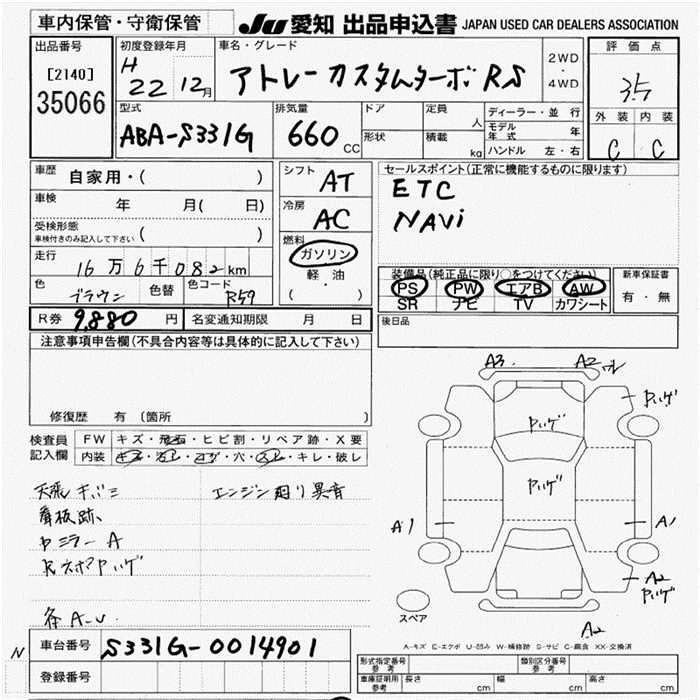 車内保管・守衛保管
JU 愛知 出品申込書 JAPAN USED CAR DEALERS ASSOCIATION
出品番号
[2140]
35066
初度登録年月
H 22 12月
車名・グレード
アトレーカスタムターボRS
2WD・4WD
評価点
3.5
外装 内装
C C
型式
ABA-S331G
排気量
660 CC
ドア
形状
定員 人
積載 kg
ディーラー・並行
モデル年式 年
ハンドル 左・右
車歴
自家用・( )
車検 年 月( 日)
受検形態
車検付きのみ記入して下さい ( )
走行
16万6千082km
色 ブラウン 色替 色コード R59
R券 9,880 円 名変通知期限 月 日
シフト AT
冷房 AC
燃料
ガソリン
軽・油
( )
セールスポイント(正常に機能するものに限ります)
ETC
NAVi
装備品(純正品に限り○をつけてください)
PS PW エアB AW
SR ナビ TV カワシート
新車保証書
有・無
後日品
注意事項申告欄(不具合内容等は具体的に記入して下さい)
修復歴 有(箇所 )
検査員記入欄
FW キズ・飛石・ヒビ割・リペア跡・X要
内装 キズ・汚レ・コゲ・穴・スレ・キレ・破レ
天張キバミ エンジン廻り異音
看板跡
ヤミラーA
Rスポヤハゲ
各A-U
A3 A2 ワレ
ヤハゲ
ヤハゲ
ヤハゲ
A1 A1
A2
ヤハゲ
スペア
A2
A-キズ E-エクボ U-凹み W-補修跡 S-サビ C-腐食 XX-交換済
N
車台番号 S331G-0014901
登録番号
型式指定番号 参考
類別区分番号 参考
車庫証明用 参考 長さ cm 幅 cm 高さ cm